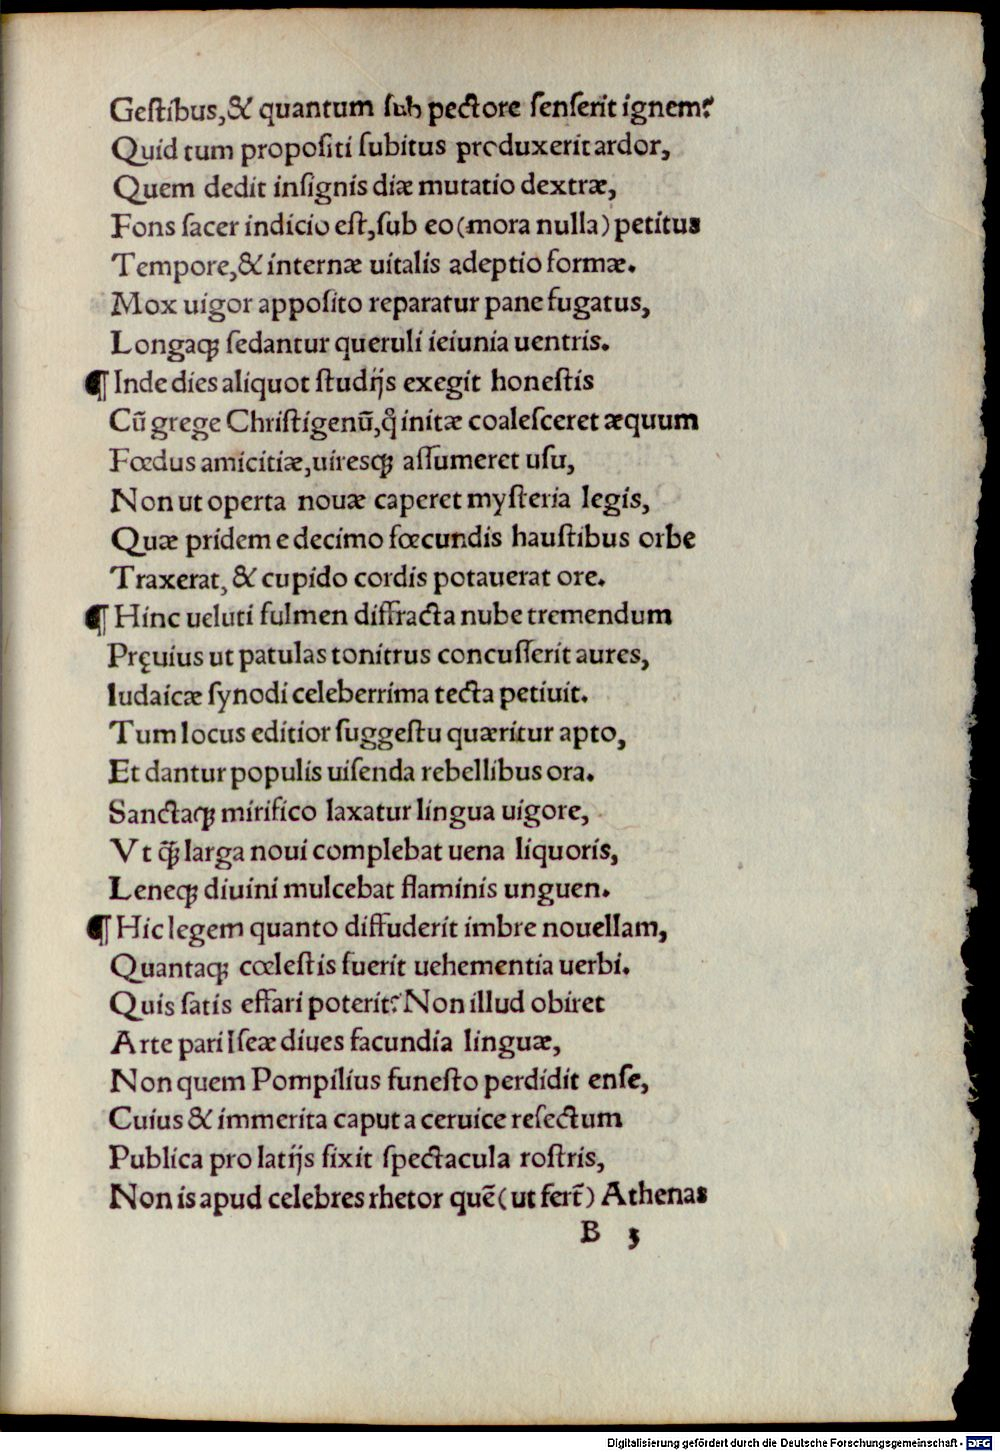 Gestibus,& quantum sub pectore senserit ignem?
Quid tum propositi subitus produxerit ardor,
Quem dedit insignis diæ mutatio dextræ,
Fons sacer indicio est,sub eo(mora nulla)petitus
Tempore,& internæ uitalis adeptio formæ.
Mox uigor apposito reparatur pane fugatus,
Longaqꝫ sedantur queruli ieiunia uentris.
¶ Inde dies aliquot studijs exegit honestis
Cũ grege Christigenũ,q̊ initæ coalesceret æquum
Fœdus amicitiæ,uiresqꝫ assumeret usu,
Non ut operta nouæ caperet mysteria legis,
Quæ pridem e decimo fœcundis haustibus orbe
Traxerat, & cupido cordis potauerat ore.
¶ Hinc ueluti fulmen diffracta nube tremendum
Pręuius ut patulas tonitrus concusserit aures,
Iudaicæ synodi celeberrima tecta petiuit.
Tum locus editior suggestu quæritur apto,
Et dantur populis uisenda rebellibus ora.
Sanctaqꝫ mirifico laxatur lingua uigore,
Vt q̃ꝫ larga noui complebat uena liquoris,
Leneqꝫ diuini mulcebat flaminis unguen.
¶ Hic legem quanto diffuderit imbre nouellam,
Quantaqꝫ cœlestis fuerit uehementia uerbi.
Quis satis effari poterit? Non illud obiret
Arte pari Iseæ diues facundia linguæ,
Non quem Pompilius funesto perdidit ense,
Cuius & immerita caput a ceruice resectum
Publica pro latijs fixit spectacula rostris,
Non is apud celebres rhetor quẽ(ut fert̃) Athenas
B 3
Digitalisierung gefördert durch die Deutsche Forschungsgemeinschaft - DFG